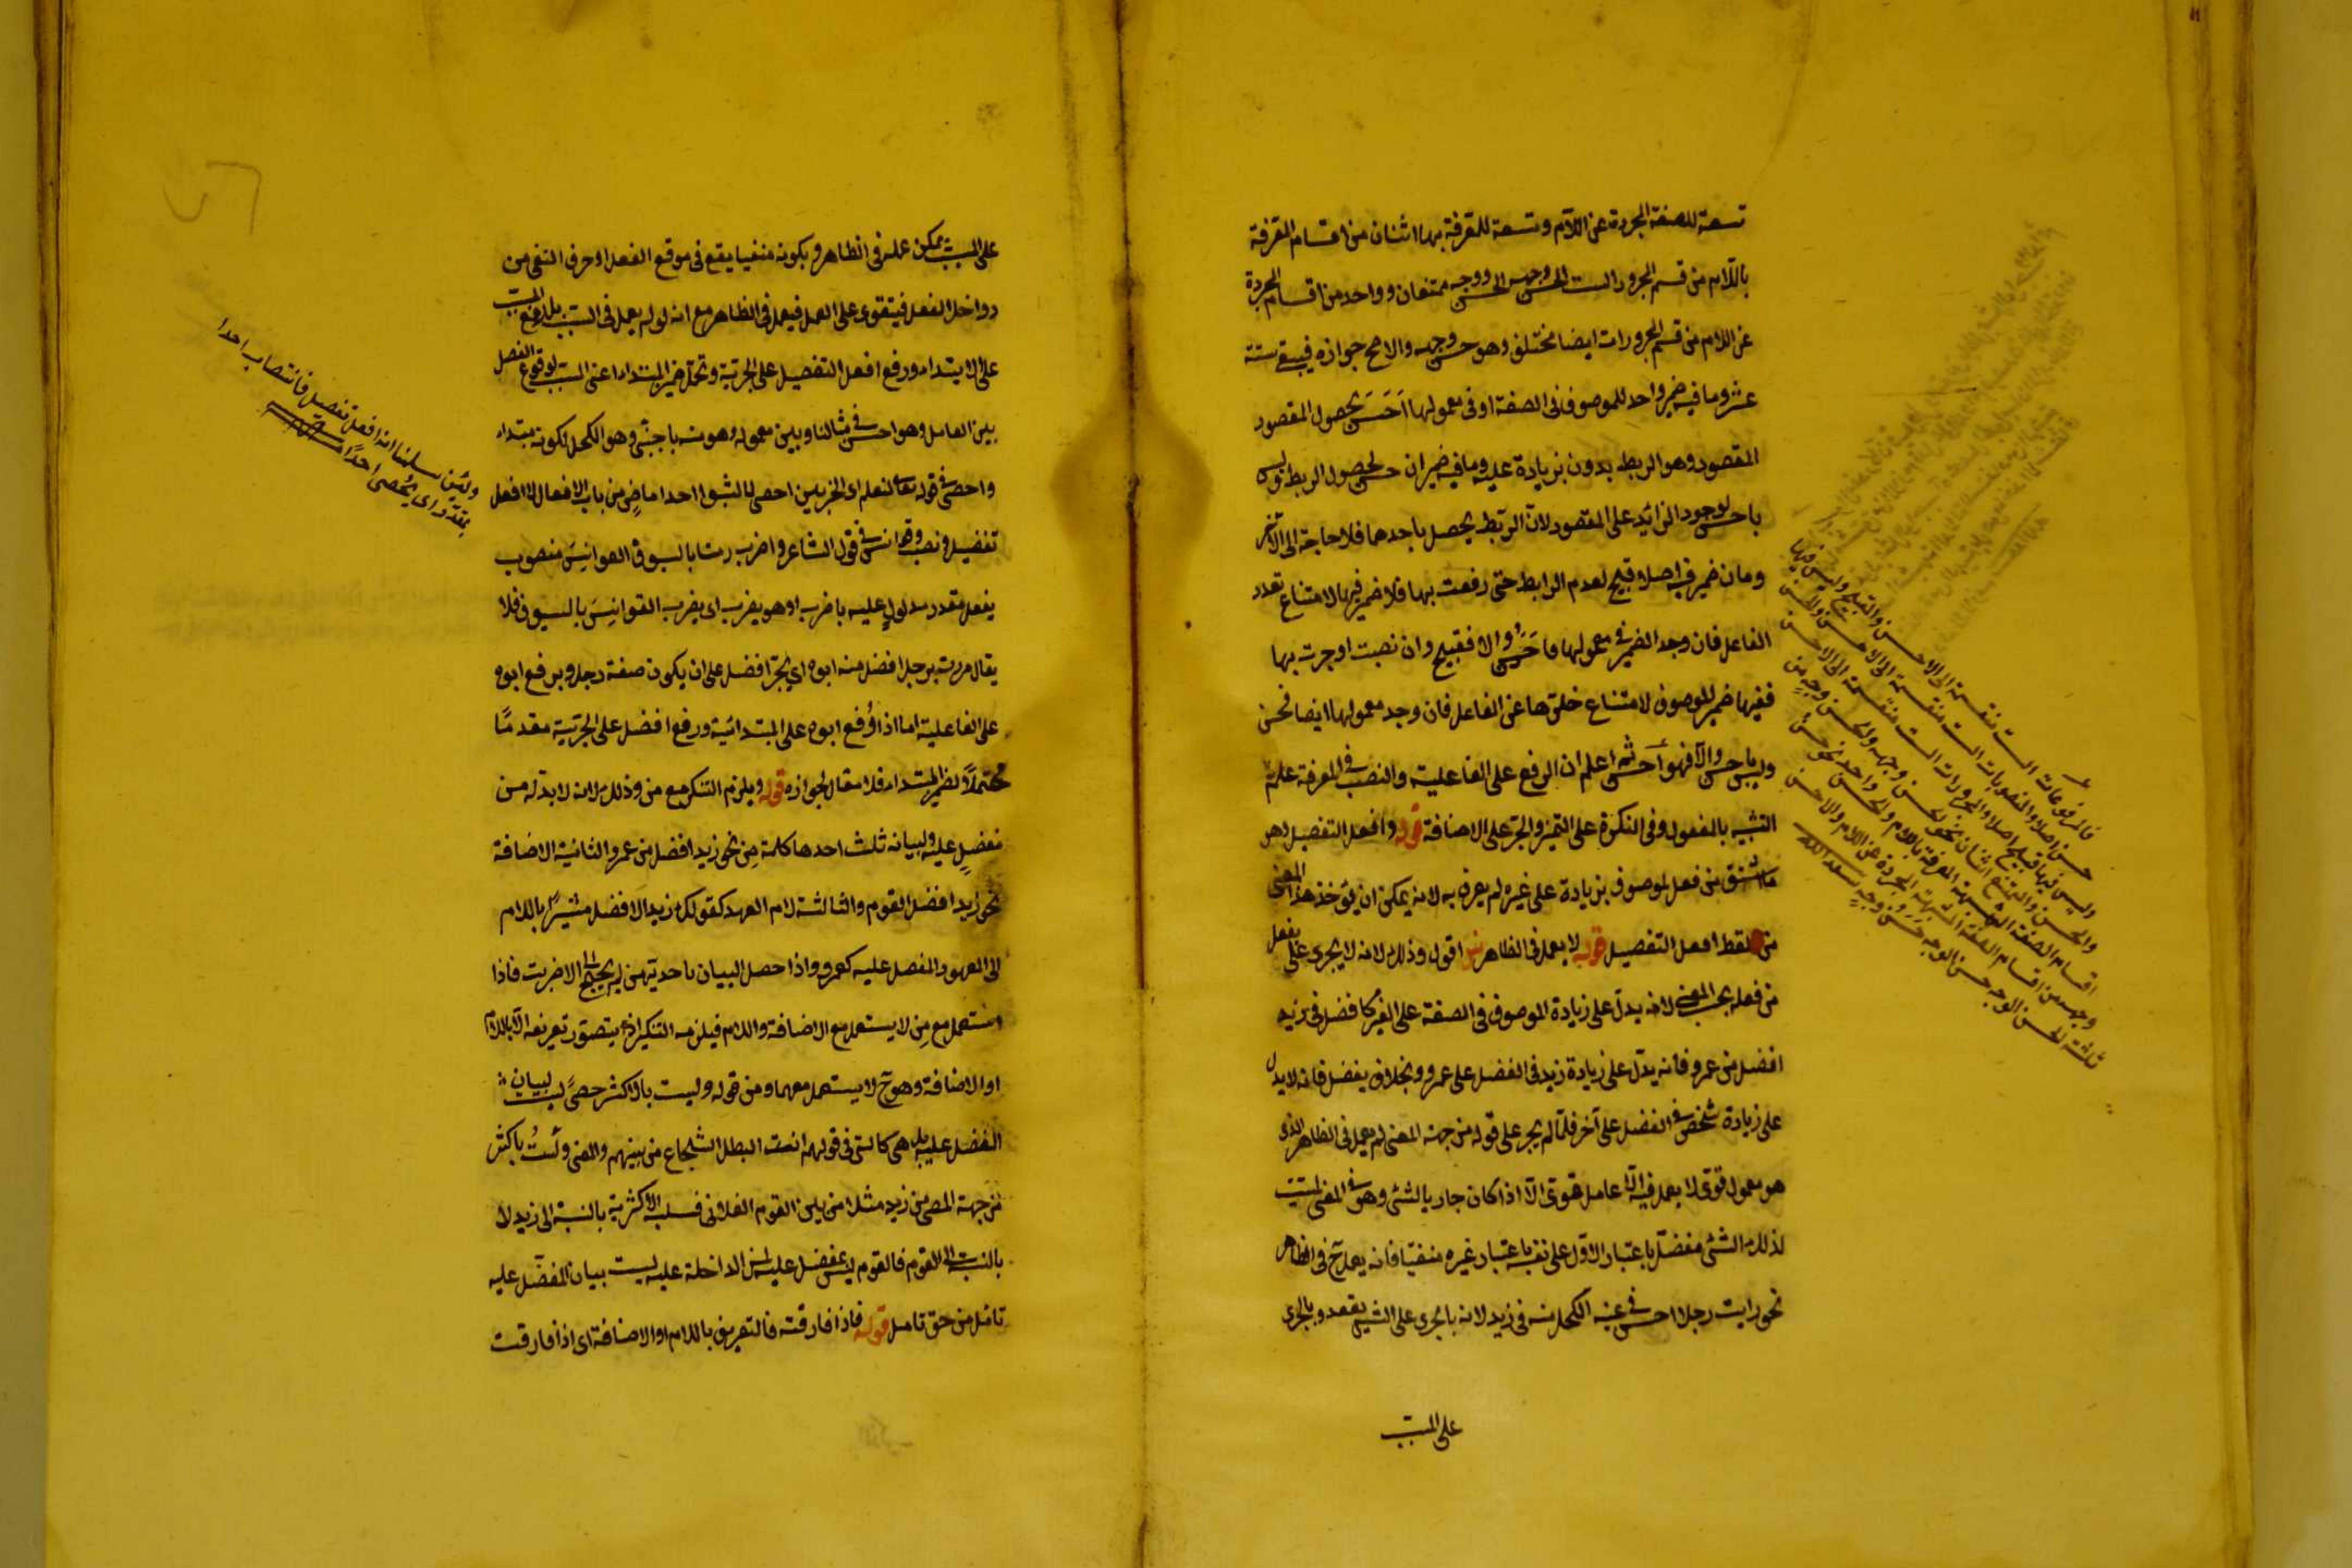 تسعة للصفة المجردة عن اللآم وتسعة للمعرفة بها اثنان من اقسام المعرفة
باللآم من قسم المجرور الست الحسن وجهه الحسن ووجه ممتنعان وواحد من اقسام المجردة
عن اللام من قسم المجرورات ايضا مختلف وهو حسن وجهه والاصح جوازه فيبقى ستة
عشر وما فيه ضمير واحد للموصوف في الصفة او في معمولها احسن لحصول المقصود
المقصود وهو الربط بدون زيادة عليه وما فيه ضميران حسن لحصول الربط وليس
باحسن لوجود الزائد على المقصود لان الربط يحصل باحدهما فلا حاجة الى الآخر
وما لا ضمير فيه اصلا قبيح لعدم الرابط حتى رفعت بها فلا ضمير فيها لامتناع تعدد
الفاعل فان وجد الضمير في معمولها فاحسن والا فقبيح وان نصبت او جرت بها
ففيها ضمير الموصوف لامتناع خلوها عن الفاعل فان وجد معمولها ايضا فحسن
وليس باحسن والا فهو احسن ثم اعلم ان الرفع على الفاعلية والنصب في المعرفة على
التشبيه بالمفعول وفي النكرة على التميز والجر على الاضافة قوله وافعل التفضيل وهو
ما اشتق من فعل لموصوف بزيادة على غيره لم يعرفه به لانه يمكن ان يؤخذ هذا المعنى
من لفظ افعل التفضيل قوله لا يعمل في الظاهر اقول وذلك لانه لا يجرى على يفعل
من فعله بحسب المعنى لانه يدل على زيادة الموصوف في الصفة على الغير كافضل في زيد
افضل من عمرو فانه يدل على زيادة زيد في الفضل على عمرو وبخلاف يفضل فانه لا يدل
على زيادة شخص في الفضل على آخر فلما لم يجر على قوله من جهة المعنى لم يعمل في الظاهر الذى
هو معمول قوى لا يعمل فيه الا عامل قوى الا اذا كان جار بالشئ وهو في المعنى لمسبب
لذلك الشئ مفضل باعتبار الاول على نفسه باعتبار غيره منفيا فانه يعمل ح في الظاهر
نحو رايت رجلا احسن في عينه الكحل منه في زيد لانه بالجرى على الشئ يقعد وبالجرى
على المسبب
فالمرفوعات الست منقسمة الى الاحسن والقبيح وليس فيها
حسن اصلا والمنصوبات الست منقسمة الى الاحسن والحسن
وليس فيها قبيح اصلا والمجرورات الست منقسمة الى الاحسن
والحسن والممتنع اثنان نحو الحسن وجهه والحسن وجه من
اقسام الصفة المشبهة المعرفة باللام والحسن واحد نحو حسن
وجهه من اقسام الصفة المشبهة المجردة عن اللام والاحسن
ثلثة الحسن الوجه حسن الوجه حسن وجه سعد الله
على المسبب يمكن عمله في الظاهر وبكونه منفيا يقع في موقع الفعل اذ حرف النفى من
دواخل الفعل فيتقوى على العمل فيعمل في الظاهر مع انه لو لم يعمل في السبب بل رفع السبب
على الابتداء ورفع افعل التفضيل على الخبرية وتحمل ضمير المبتداء اعنى السبب لوقوع الفصل
بين العامل وهو احسن في مثالنا وبين معموله وهو منه باجنبى وهو الكحل لكونه مبتداء
واحصى في قوله تعالى لنعلم اى الحزبين احصى لما لبثوا احدا ماضٍ من باب الافعال لا افعل
تفضيل ونصب القوانس في قول الشاعر واضرب منا بالسيوف القوانس منصوب
بفعل مقدر مدلول عليه باضرب او هو يضرب اى يضرب القوانس بالسيوف فلا
يقال مررت برجل افضل منه ابوه اى بجر افضل على ان يكون صفة رجل وبرفع ابوه
على الفاعلية اما اذا رُفع ابوه على المبتدائية ورفع افضل على الخبرية مقدمًا
محتملاً لضمير المبتداء فلا مقال لجوازه قوله ويلزم التنكير مع من وذلك لانه لا بد له من
مفضل عليه ولبيانه ثلث احدها كلمة من نحو زيد افضل من عمرو والثانية الاضافة
نحو زيد افضل القوم والثالثة لام العهد كقولك زيد الافضل مشيرًا باللام
الى المعهود المفضل عليه كعمرو واذا حصل البيان باحديهن لم يحتج الى الاخريت فاذا
استعمل مع من لا يستعمل مع الاضافة واللام فيلزمه التنكير اذ لا يتصور تعريفه الا باللام
او الاضافة وهو ح لا يستعمل معهما ومن في قوله ولست بالاكثر حصىً ليست لبيان
المفضل عليه بل هى كالتى في قولهم انت البطل الشجاع من بينهم والمعنى ولستُ باكثر
من جهة الحصى من زيد مثلا من بين القوم الفلانى فسلب الاكثرية بالنسبة الى زيد لا
بالنسبة الى القوم فالقوم ليس بمفضل عليه من الداخلة عليه ليست بيان المفضل عليه
تامل من حق تامل قوله فاذا فارقته فالتعريف باللام او الاضافة اى اذا فارقت
ولئن سلمنا انه افعل تفضيل فانتصاب احدا
بمقدر اى يُحصى احدًا